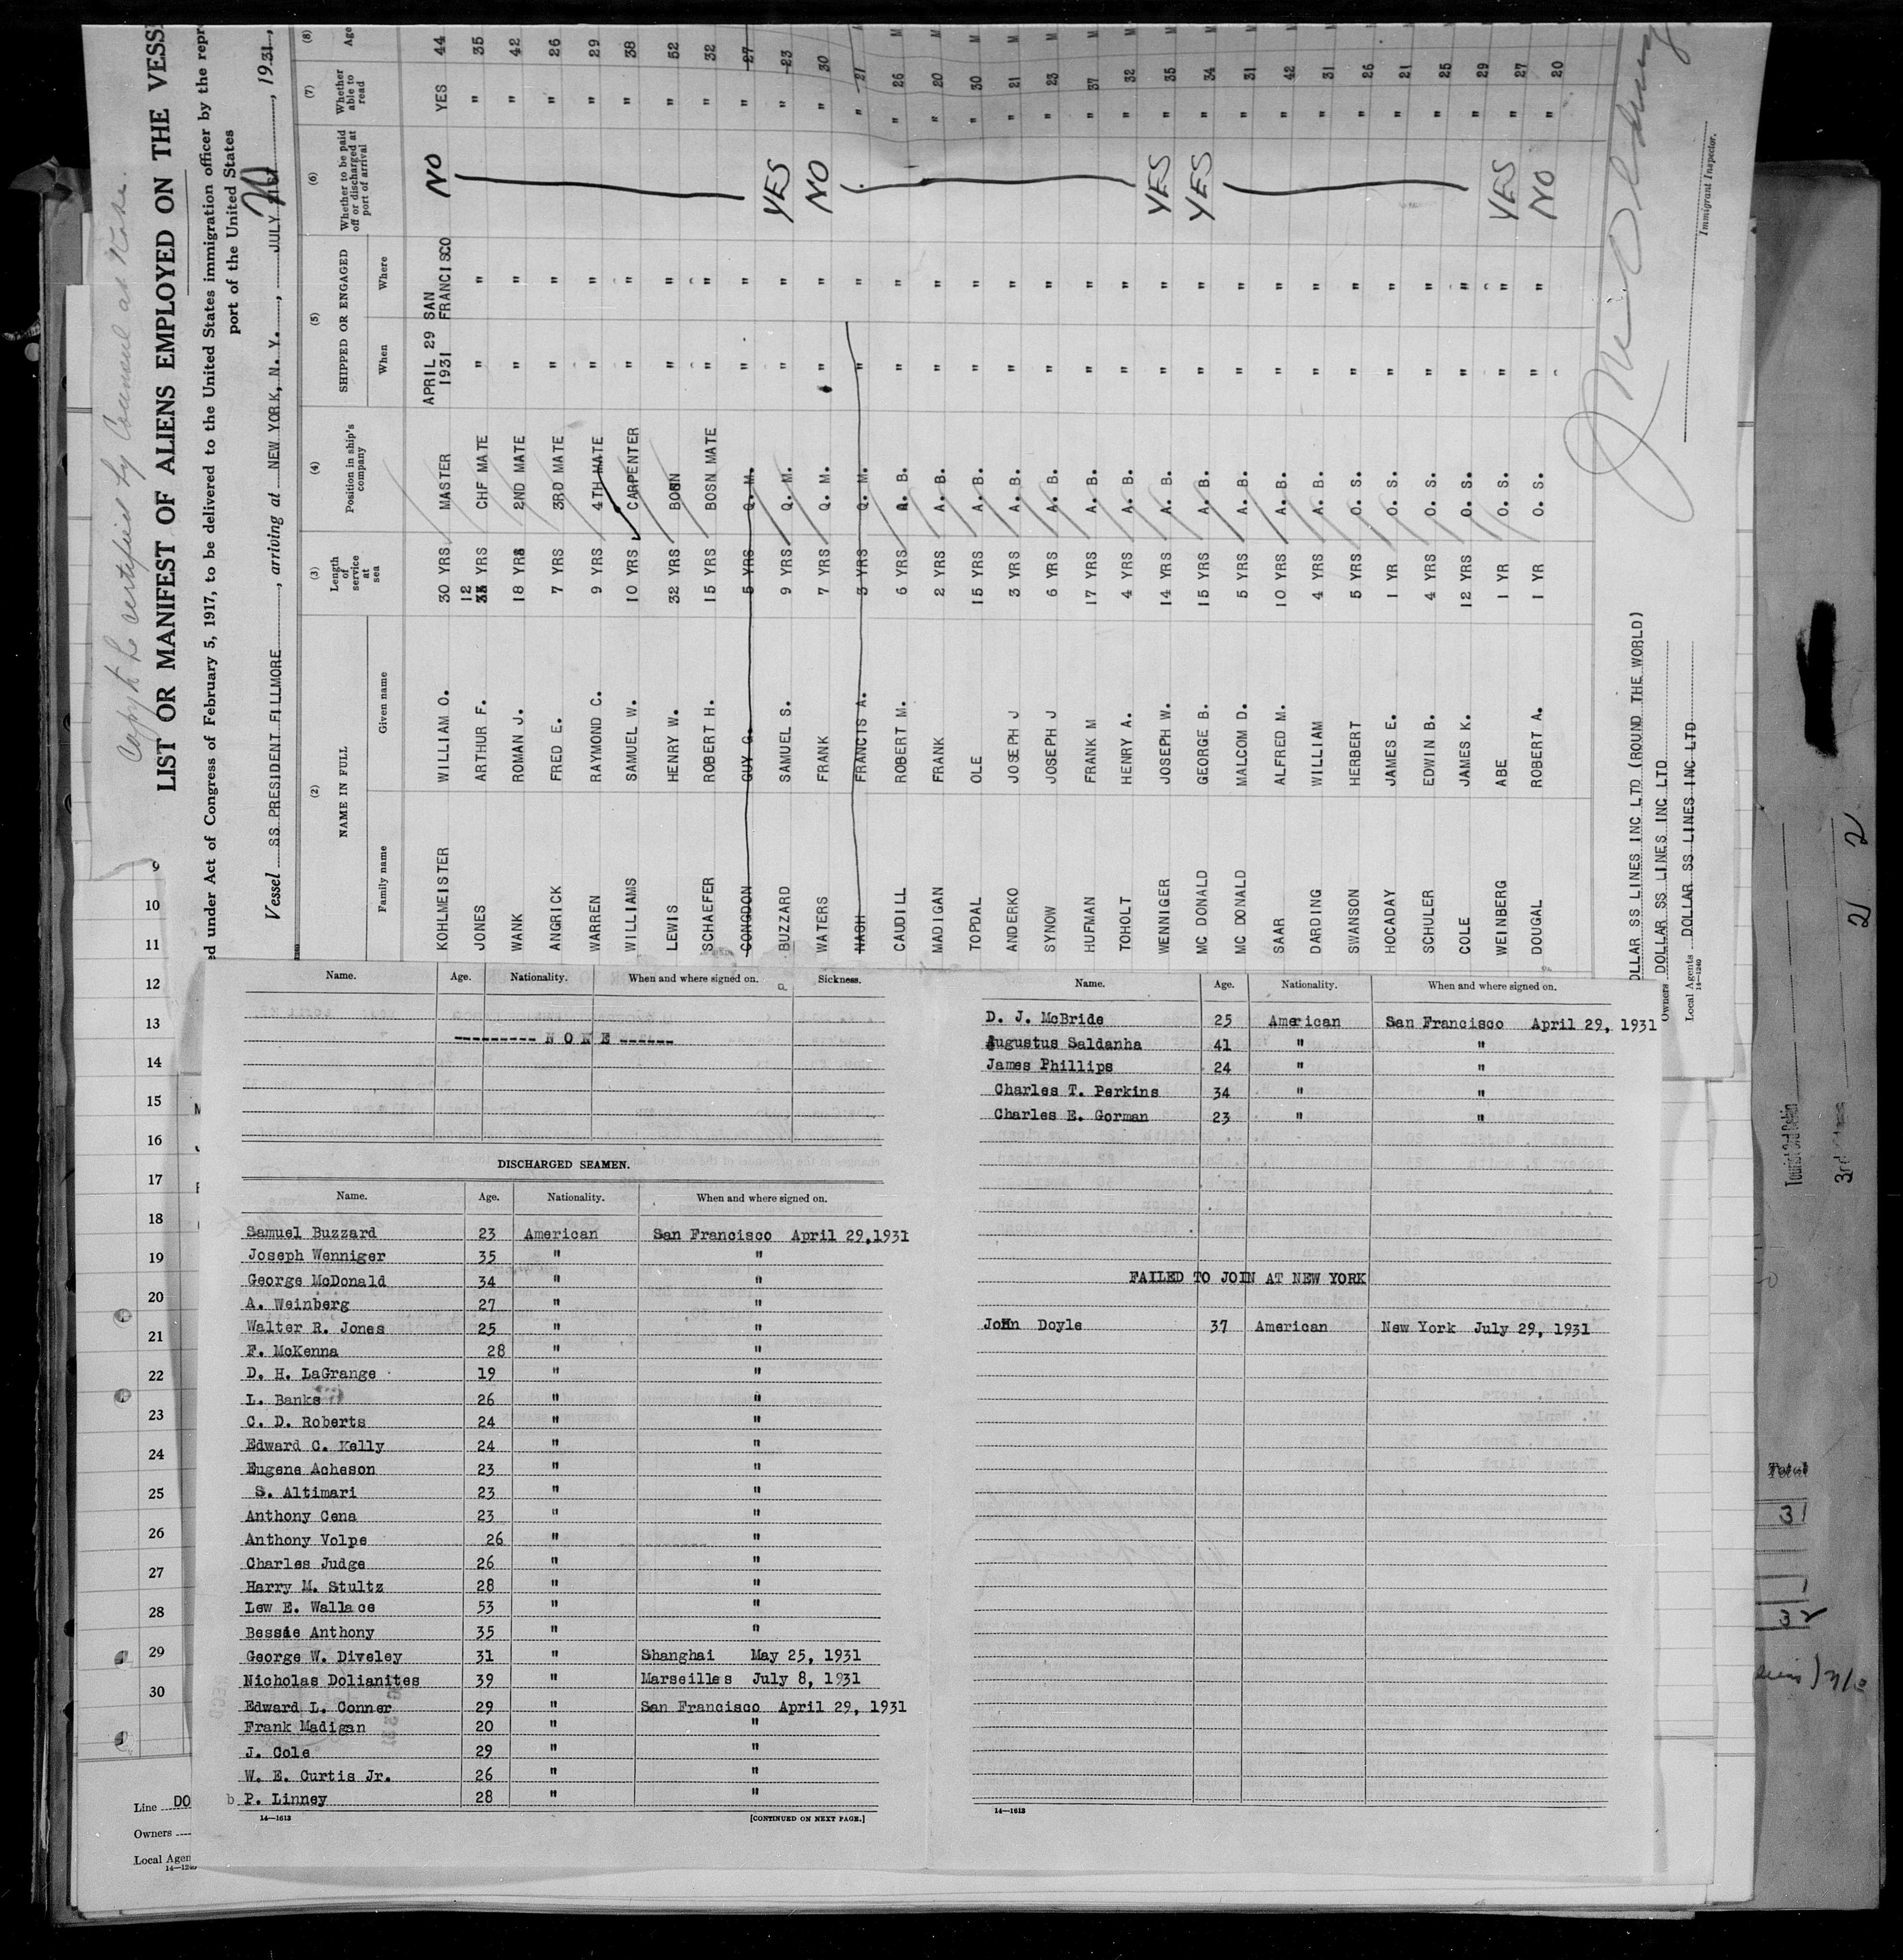 Copy to be certified by Counsul as Made.
LIST OR MANIFEST OF ALIENS EMPLOYED ON THE VESS
ed under Act of Congress of February 5, 1917, to be delivered to the United States immigration officer by the repr
port of the United States
Vessel SS PRESIDENT FILLMORE, arriving at NEW YORK, N. Y., JULY 1931,
(2) (3) (4) (5) (6) (7) (8)
NAME IN FULL Length of service at sea Position in ship's company SHIPPED OR ENGAGED Whether to be paid off or discharged at port of arrival Whether able to read Age
Family name Given name When Where
KOHLMEISTER WILLIAM O. 30 YRS MASTER APRIL 29 1931 SAN FRANCISCO NO YES 44
JONES ARTHUR F. 12 YRS CHF MATE " " " 35
WANK ROMAN J. 18 YRS 2ND MATE " " " 42
ANGRICK FRED E. 7 YRS 3RD MATE " " " 26
WARREN RAYMOND C. 9 YRS 4TH MATE " " " 29
WILLIAMS SAMUEL W. 10 YRS CARPENTER " " " 38
LEWIS HENRY W. 32 YRS BOSN " " " 52
SCHAEFER ROBERT H. 15 YRS BOSN MATE " " " 32
CONGDON GUY G. 5 YRS Q. M. " " " 27
BUZZARD SAMUEL S. 9 YRS Q. M. " " YES " 23
WATERS FRANK 7 YRS Q. M. " " NO " 30
NASH FRANCIS A. 3 YRS Q. M. " " " 21 M
CAUDILL ROBERT M. 6 YRS A. B. " " " 26 M
MADIGAN FRANK 2 YRS A. B. " " " 20 M
TOPDAL OLE 15 YRS A. B. " " " 30 M
ANDERKO JOSEPH J 3 YRS A. B. " " " 21 M
SYNOW JOSEPH J 6 YRS A. B. " " " 23 M
HUFMAN FRANK M 17 YRS A. B. " " " 37 M
TOHOLT HENRY A. 4 YRS A. B. " " " 32 M
WENNIGER JOSEPH W. 14 YRS A. B. " " YES " 35 M
MC DONALD GEORGE B. 15 YRS A. B. " " YES " 34 M
MC DONALD MALCOM D. 5 YRS A. B. " " " 31 M
SAAR ALFRED M. 10 YRS A. B. " " " 42 M
DARDING WILLIAM 4 YRS A. B. " " " 31 M
SWANSON HERBERT 5 YRS O. S. " " " 26 M
HOCADAY JAMES E. 1 YR O. S. " " " 21 M
SCHULER EDWIN B. 4 YRS O. S. " " " 25 M
COLE JAMES K. 12 YRS O. S. " " " 29 M
WEINBERG ABE 1 YR O. S. " " YES " 27 M
DOUGAL ROBERT A. 1 YR O. S. " " NO " 20
OLLAR SS LINES INC LTD (ROUND THE WORLD)
Owners DOLLAR SS LINES INC LTD
Local Agents DOLLAR SS LINES INC LTD
14—1240
Immigrant Inspector.
9
10
11
12
13
14
15
16
17
18
19
20
21
22
23
24
25
26
27
28
29
30
Line DO
Owners
Local Agen
14—1240
Name. Age. Nationality. When and where signed on. Sickness.
--------- N O N E ------
DISCHARGED SEAMEN.
Name. Age. Nationality. When and where signed on.
Samuel Buzzard 23 American San Francisco April 29,1931
Joseph Wenniger 35 " "
George McDonald 34 " "
A. Weinberg 27 " "
Walter R. Jones 25 " "
F. McKenna 28 " "
D. H. LaGrange 19 " "
L. Banks 26 " "
C. D. Roberts 24 " "
Edward C. Kelly 24 " "
Eugene Acheson 23 " "
S. Altimari 23 " "
Anthony Cena 23 " "
Anthony Volpe 26 " "
Charles Judge 26 " "
Harry M. Stultz 28 " "
Lew E. Wallace 53 " "
Bessie Anthony 35 " "
George W. Diveley 31 " Shanghai May 25, 1931
Nicholas Dolianites 39 " Marseilles July 8, 1931
Edward L. Conner 29 " San Francisco April 29, 1931
Frank Madigan 20 " "
J. Cole 29 " "
W. E. Curtis Jr. 26 " "
b P. Linney 28 " "
14—1613 [CONTINUED ON NEXT PAGE.]
Name. Age. Nationality. When and where signed on.
D. J. McBride 25 American San Francisco April 29, 1931
Augustus Saldanha 41 " "
James Phillips 24 " "
Charles T. Perkins 34 " "
Charles E. Gorman 23 " "
FAILED TO JOIN AT NEW YORK
John Doyle 37 American New York July 29, 1931
14—1613
Tourist 3rd Cabin
3rd Class
2 2
Total
31
1
32